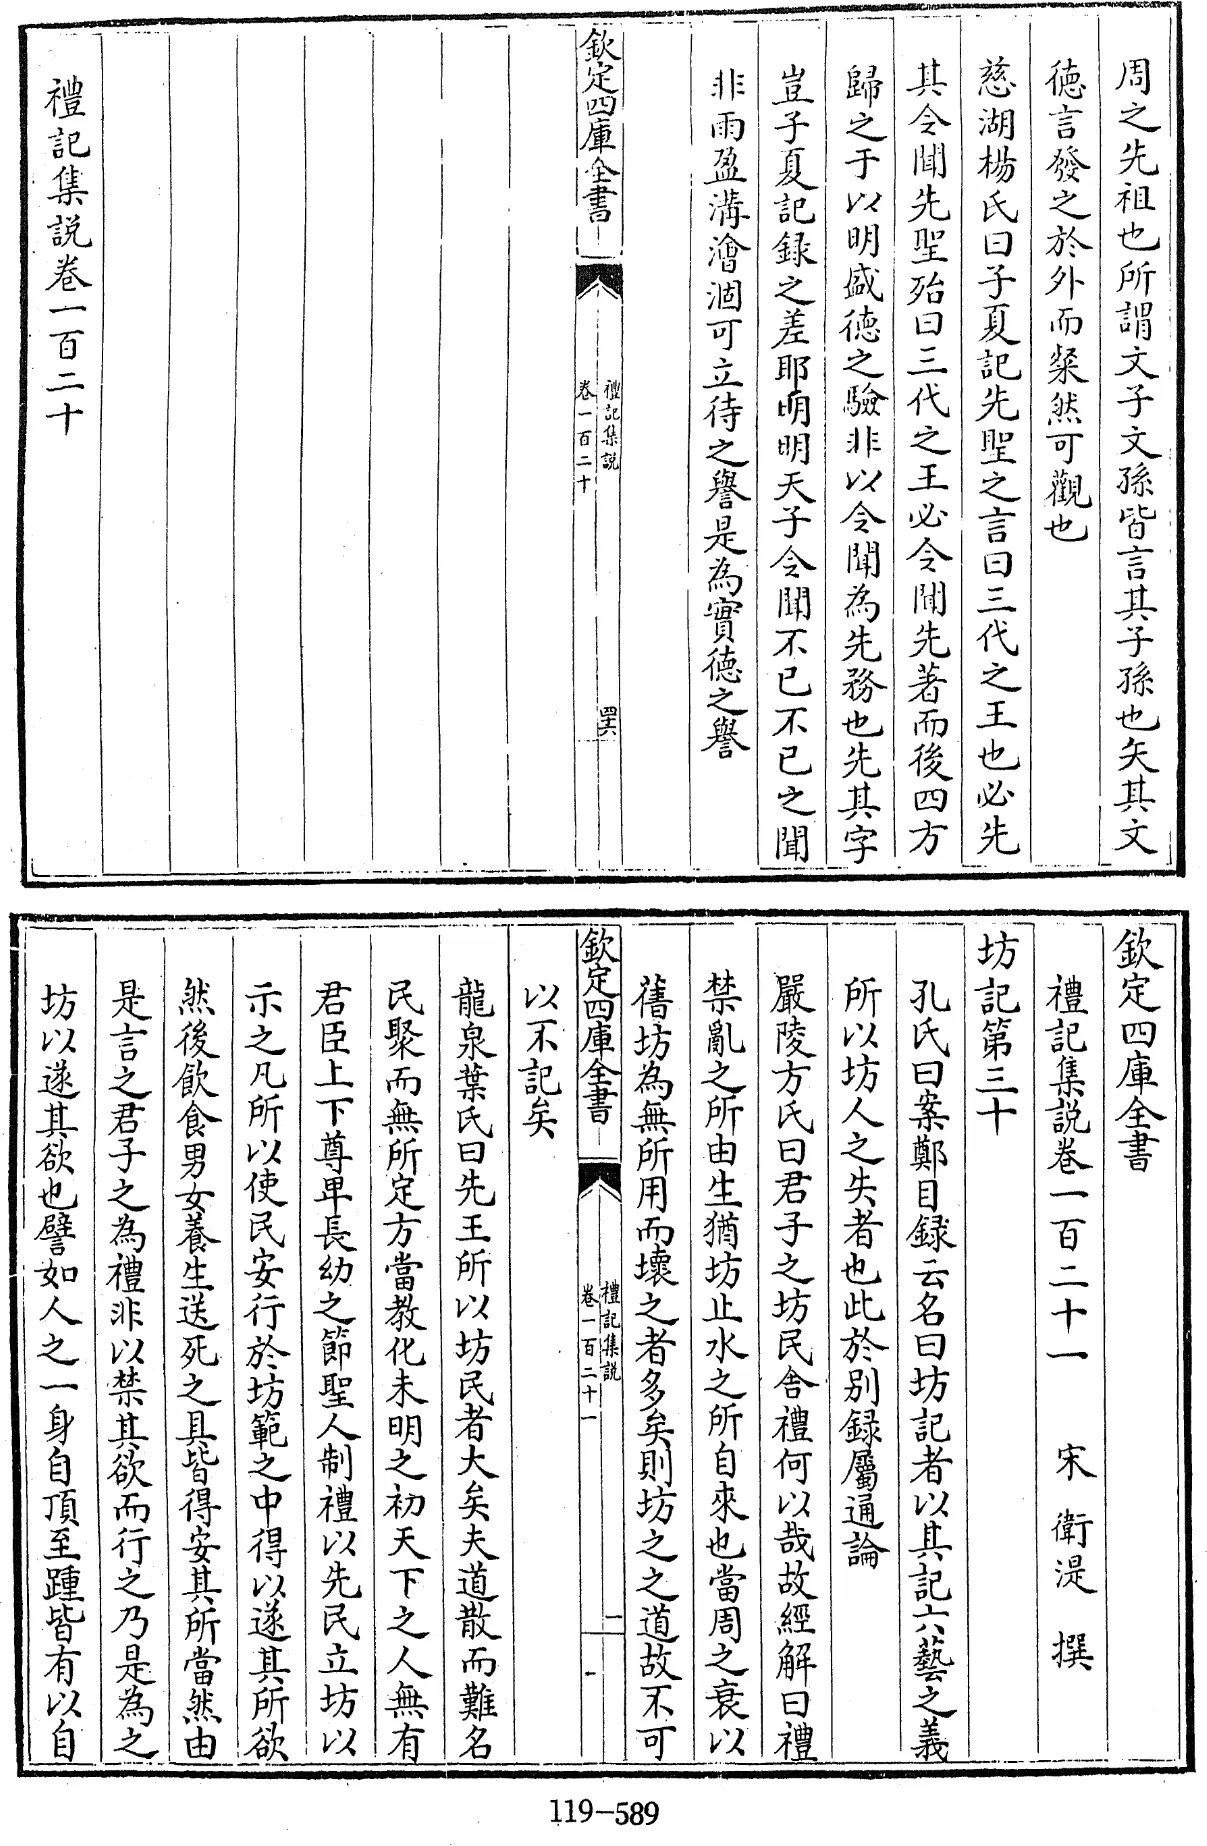 周之先祖也所謂文子文孫皆言其子孫也矢其文
徳言發之於外而粲然可觀也
慈湖楊氏曰子夏記先聖之言曰三代之王也必先
其令聞先聖殆曰三代之王必令聞先著而後四方
歸之于以明盛徳之驗非以令聞為先務也先其字
豈子夏記録之差耶明明天子令聞不已不已之聞
非雨盈溝澮涸可立待之譽是為實徳之譽
欽定四庫全書
禮記集説
卷一百二十
四六
禮記集説卷一百二十
欽定四庫全書
禮記集説卷一百二十一 宋 衛湜 撰
坊記第三十
孔氏曰案鄭目録云名曰坊記者以其記六藝之義
所以坊人之失者也此於别録屬通論
嚴陵方氏曰君子之坊民舍禮何以哉故經解曰禮
禁亂之所由生猶坊止水之所自來也當周之衰以
舊坊為無所用而壞之者多矣則坊之之道故不可
欽定四庫全書
禮記集説
卷一百二十一
一
以不記矣
龍泉葉氏曰先王所以坊民者大矣夫道散而難名
民聚而無所定方當教化未明之初天下之人無有
君臣上下尊卑長幼之節聖人制禮以先民立坊以
示之凡所以使民安行於坊範之中得以遂其所欲
然後飲食男女養生送死之具皆得安其所當然由
是言之君子之為禮非以禁其欲而行之乃是為之
坊以遂其欲也譬如人之一身自頂至踵皆有以自
119-589